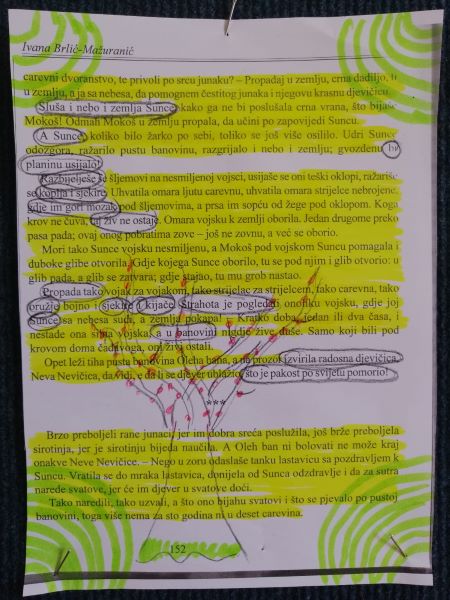 Ivana Brlić-Mažuranić
carevni dvoranstvo, te privoli po srcu junaku? – Propadaj u zemlju, crna dadiljo, ti
u zemlju, a ja sa nebesa, da pomognem čestitog junaka i njegovu krasnu djevičicu.
Sluša i nebo i zemlja Sunce, kako ga ne bi poslušala crna vrana, što bijaše
Mokoš! Odmah Mokoš u zemlju propala, da učini po zapovijedi Suncu.
A Sunce, koliko bilo žarko po sebi, toliko se još više osililo. Udri Sunce
odozgora, ražarilo pustu banovinu, razgrijalo i nebo i zemlju; gvozdenu bi
planinu usijalo!
Razbijelješe se šljemovi na nesmiljenoj vojsci, usijaše se oni teški oklopi, ražariše
se koplja i sjekire. Uhvatila omara ljutu carevnu, uhvatila omara strijelce nebrojene,
gdje im gori mozak pod šljemovima, a prsa im sopću od žege pod oklopom. Koga
krov ne čuva, taj živ ne ostaje. Omara vojsku k zemlji oborila. Jedan drugome preko
pasa pada; ovaj onog pobratima zove – još ne zovnu, a već se oborio.
Mori tako Sunce vojsku nesmiljenu, a Mokoš pod vojskom Suncu pomagala i
duboke glibe otvorila. Gdje kojega Sunce oborilo, tu se pod njim i glib otvorio: u
glib pada, a glib se zatvara; gdje stajao, tu mu grob nastao.
Propada tako vojak za vojakom, tako strijelac za strijelcem, tako carevna, tako
oružje bojno i sjekire i kijače. Strahota je pogledati onoliku vojsku, gdje joj
Sunce sa nebesa sudi, a zemlja pokapa! – Kratko doba, jedan ili dva časa, i
nestade ona silna vojska, a u banovini nigdje žive duše. Samo koji bili pod
krovom doma čađavoga, oni živi ostali.
Opet leži tiha pusta banovina Oleha bana, a na prozor izvirila radosna djevičica,
Neva Nevičica, da vidi, e da li se djever ublažio, što je pakost po svijetu pomorio!
***
Brzo preboljeli rane junaci, jer im dobra sreća poslužila, još brže preboljela
sirotinja, jer je sirotinju bijeda naučila. A Oleh ban ni bolovati ne može kraj
onakve Neve Nevičice. – Nego u zoru odaslaše tanku lastavicu sa pozdravljem k
Suncu. Vratila se do mraka lastavica, donijela od Sunca odzdravlje i da za sutra
narede svatove, jer će im djever u svatove doći.
Tako naredili, tako uzvali, a što ono bijahu svatovi i što se pjevalo po pustoj
banovini, toga više nema za sto godina ni u deset carevina.
152